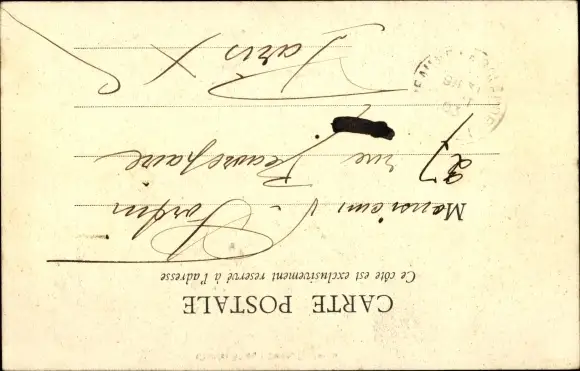 CARTE POSTALE
Ce côté est exclusivement reservé à l'adresse
Monsieur V.
27 rue Beaurepaire
Paris X